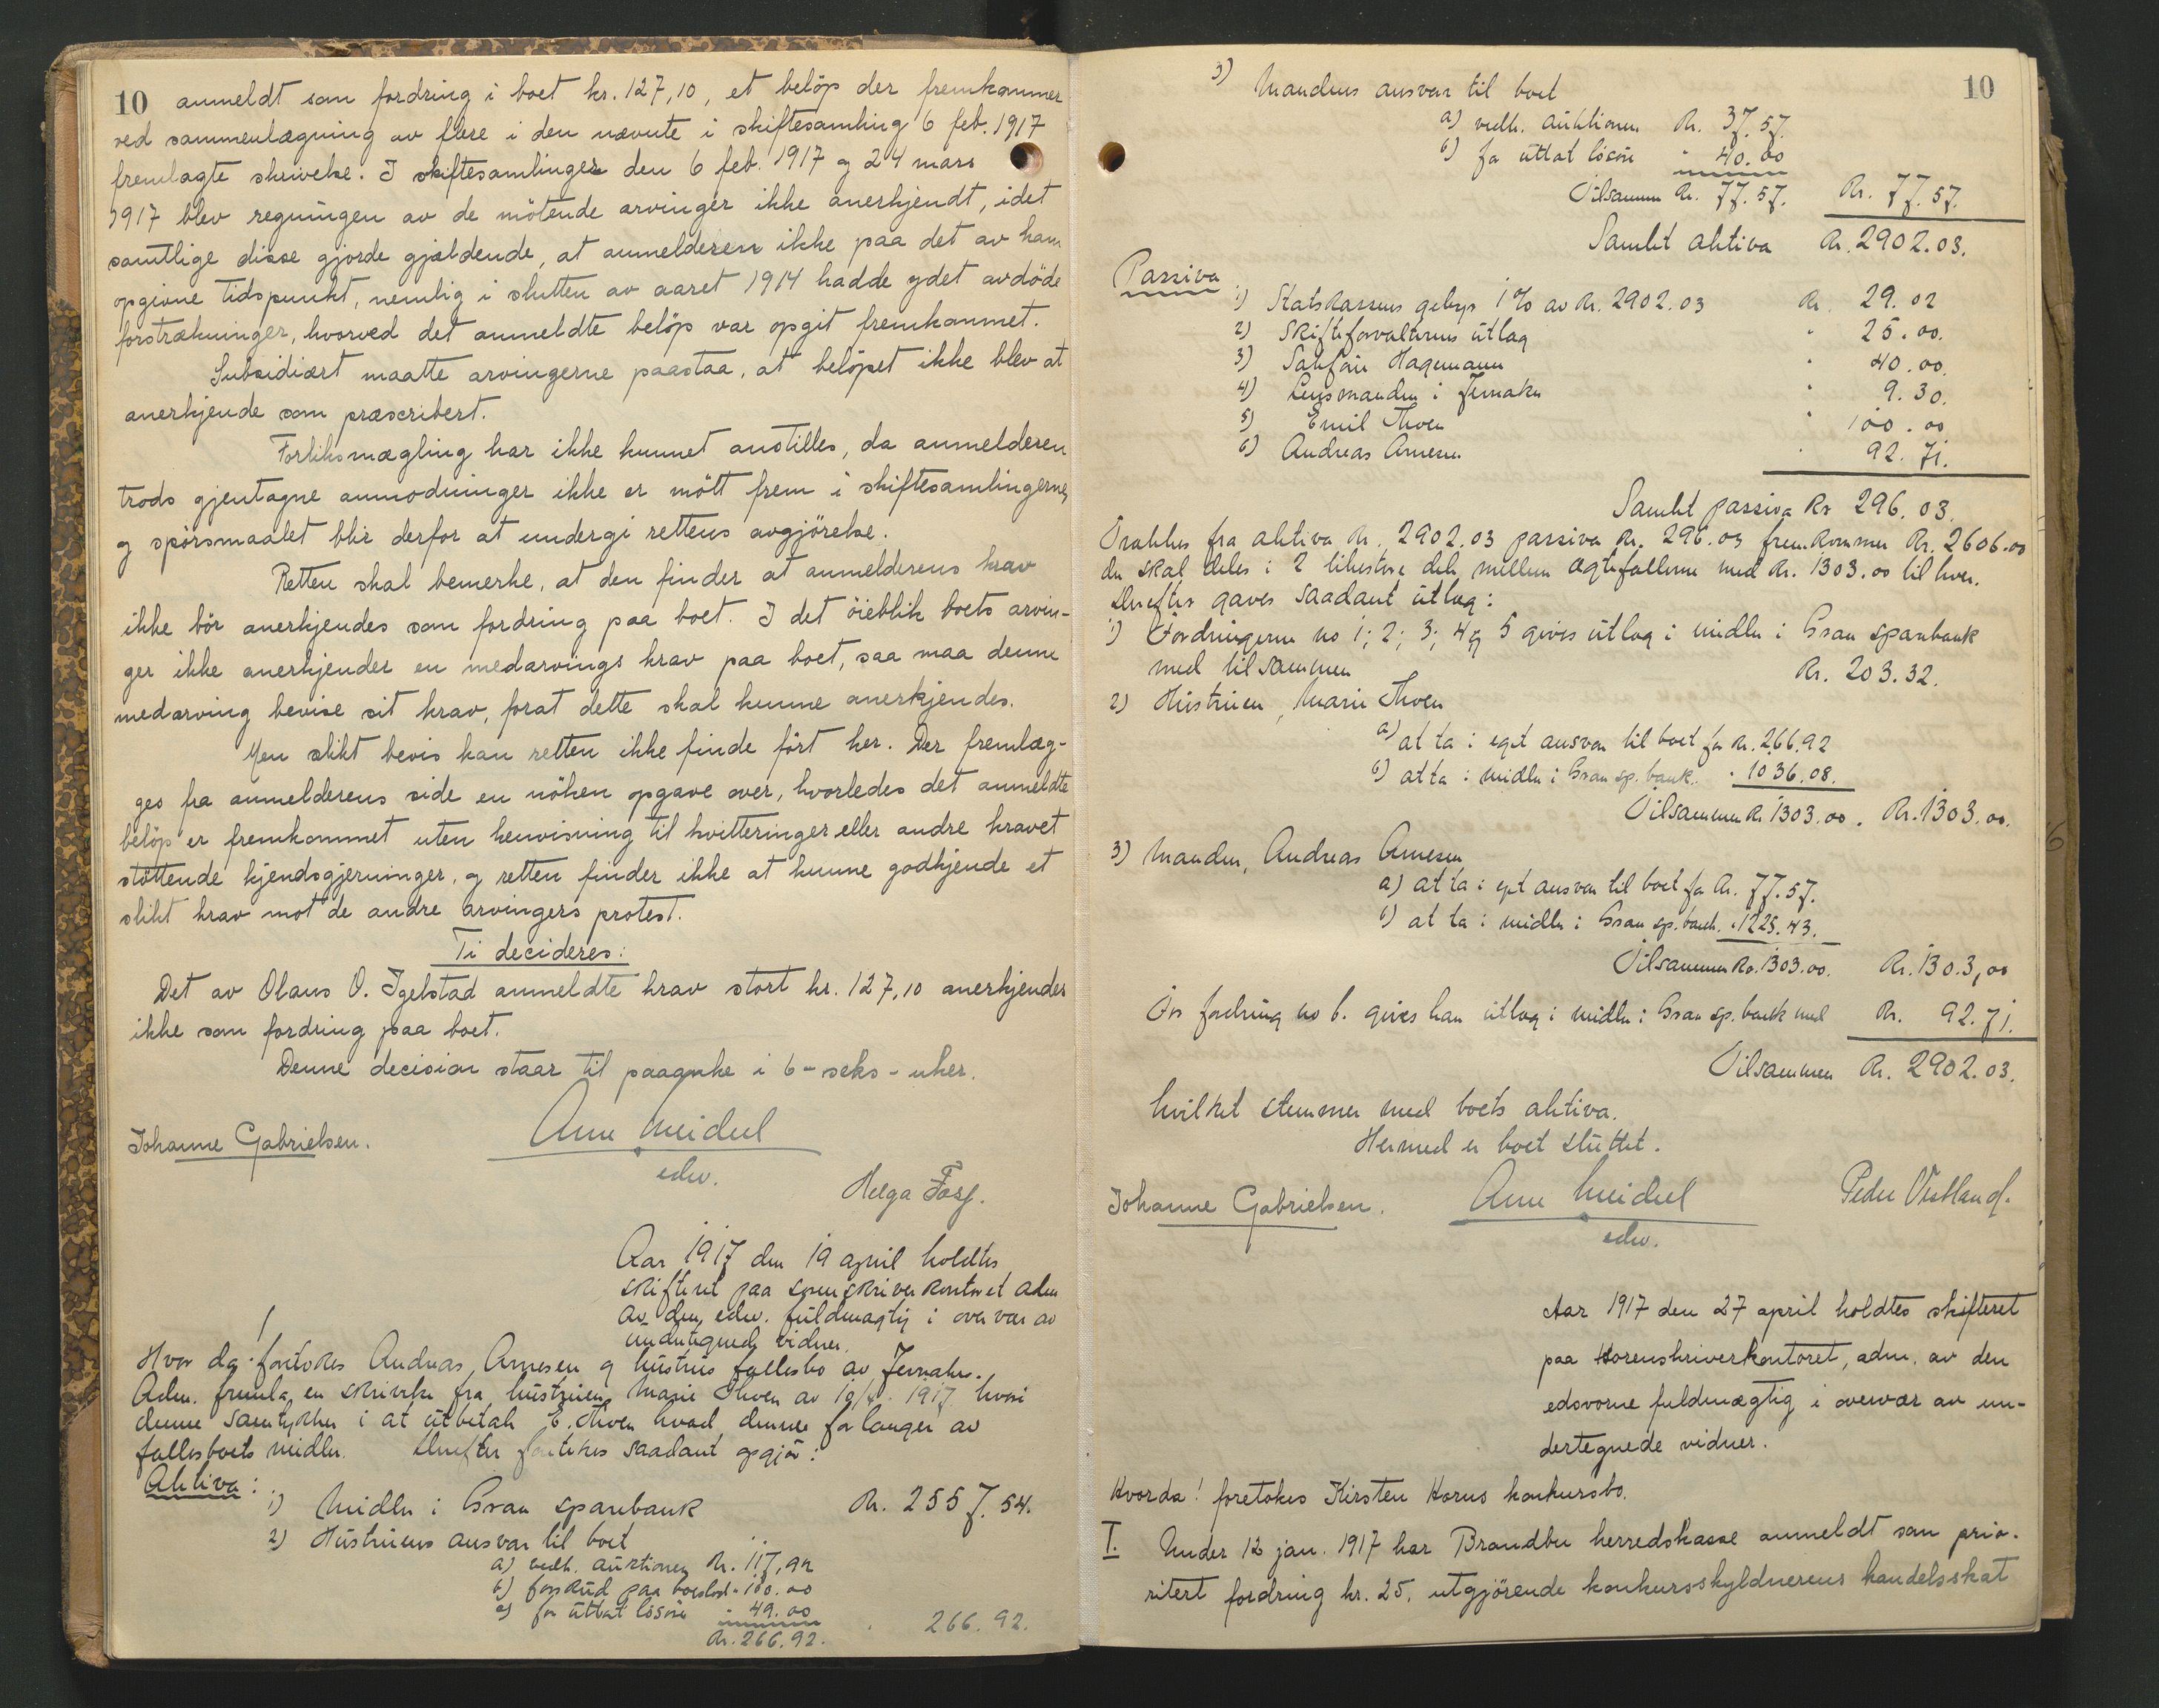 10 anmeldt som fordring i boet kr. 127,10, et belöp der fremkommer
ved sammenlægning av flere i den nævnte i skiftesamling 6 feb. 1917
fremlagte skrivelse. I skiftesamlinger den 6 feb. 1917 og 24 mars
1917 blev regningen av de mötende arvinger ikke anerkjendt, idet
samtlige disse gjorde gjældende, at anmelderen ikke paa det av ham
opgivne tidspunkt, nemlig i slutten av aaret 1914 hadde ydet avdöde
forstrækninger, hvorved det anmeldte belöp var opgit fremkommet.
Subsidiært maatte arvingerne paastaa, at belöpet ikke blev at
anerkjende som præscribert.
Forliksmægling har ikke kunnet anstilles, da anmelderen
trods gjentagne anmodninger ikke er mött frem i skiftesamlingerne,
og spörsmaalet blir derfor at undergi rettens avgjörelse.
Retten skal bemerke, at den finder at anmelderens krav
ikke bör anerkjendes som fordring paa boet. I det öieblik boets arvin-
ger ikke anerkjender en medarvings krav paa boet, saa maa denne
medarving bevise sit krav, forat dette skal kunne anerkjendes.
Men slikt bevis kan retten ikke finde fört her. Der fremlæg-
ges fra anmelderens side en nöken opgave over, hvorledes det anmeldte
belöp er fremkommet uten henvisning til kvitteringer eller andre kravet
støttende kjendsgjerninger, og retten finder ikke at kunne godkjende et
slikt krav mot de andre arvingers protest.
Ti decideres:
Det av Olaus O. Igelstad anmeldte krav stort kr. 127,10 anerkjendes
ikke som fordring paa boet.
Denne decision staar til paaanke i 6 - seks - uker.
Johanne Gabrielsen. Arne Meidell
edsv.
Helga Fossf.
Aar 1917 den 19 april holdtes
skifteret paa sorenskriverkontoret adm
av den edsv. fuldmægtig i overvær av
undertegnede vidner.
Hvor da! foretokes Andreas Arnesen og hustrus fællesbo av Jevnaker.
Adm. fremla en skrivelse fra hustruen, Marie Thoen av 10/4 1917 hvori
denne samtykker i at utbetale E. Thoen hvad denne forlanger av
fællesboets midler. Derefter foretokes saadant opgjør:
Aktiva:
1) Midler i Gran sparebank Kr. 2557.54.
2) Hustruens ansvar til boet
a) vedk. auktionen Kr. 117,92
b) forskud paa boeslod " 100.00
c) for uttat løsøre " 49.00
Kr. 266.92. " 266.92.
10
3) Mandens ansvar til boet
a) vedk. auktionen Kr. 37.57.
b) for uttat løsøre " 40.00
Tilsammen Kr. 77.57. Kr. 77.57.
Samlet aktiva Kr. 2902.03.
Passiva:
1) Statskassens gebyr 1% av Kr. 2902.03 Kr. 29.02
2) Skifteforvalterens utlæg " 25.00.
3) Sakfør Hagemann " 40.00.
4) Lensmanden i Jevnaker " 9.30.
5) Emil Thoen " 100.00
6) Andreas Arnesen " 92.71.
Samlet passiva Kr 296.03.
Trækkes fra aktiva Kr. 2902.03 passiva Kr. 296.03 fremkommer Kr. 2606.00
der skal deles i 2 likestore dele mellem ægtefællerne med Kr. 1303.00 til hver.
Derefter gaves saadant utlæg:
1) Fordringerne no 1; 2; 3; 4 og 5 gives utlæg i midler i Gran sparebank
med tilsammen Kr. 203.32.
2) Hustruen, Marie Thoen
a) at ta i eget ansvar til boet for Kr. 266.92
b) at ta i midler i Gran sp.bank. " 1036.08.
Tilsammen Kr. 1303.00. Kr. 1303.00.
3) Manden, Andreas Arnesen
a) at ta i eget ansvar til boet for Kr. 77.57.
b) at ta i midler i Gran sp.bank. " 1225.43.
Tilsammen Kr. 1303.00. Kr. 1303,00
For fordring no 6. gives han utlæg i midler i Gran sp.bank med Kr. 92.71.
Tilsammen Kr. 2902.03.
hvilket stemmer med boets aktiva.
Hermed er boet sluttet.
Johanne Gabrielsen. Arne Meidell
edsv.
Aar 1917 den 27 april holdtes skifteret
paa sorenskriverkontoret, adm. av den
edsvorne fuldmægtig i overvær av un-
dertegnede vidner.
Hvorda! foretokes Kirsten Horns konkursbo.
I. Under 12 jan. 1917 har Brandbu herredskasse anmeldt som prio-
ritert fordring kr. 25. utgjörende konkursskyldnerens handelsskat